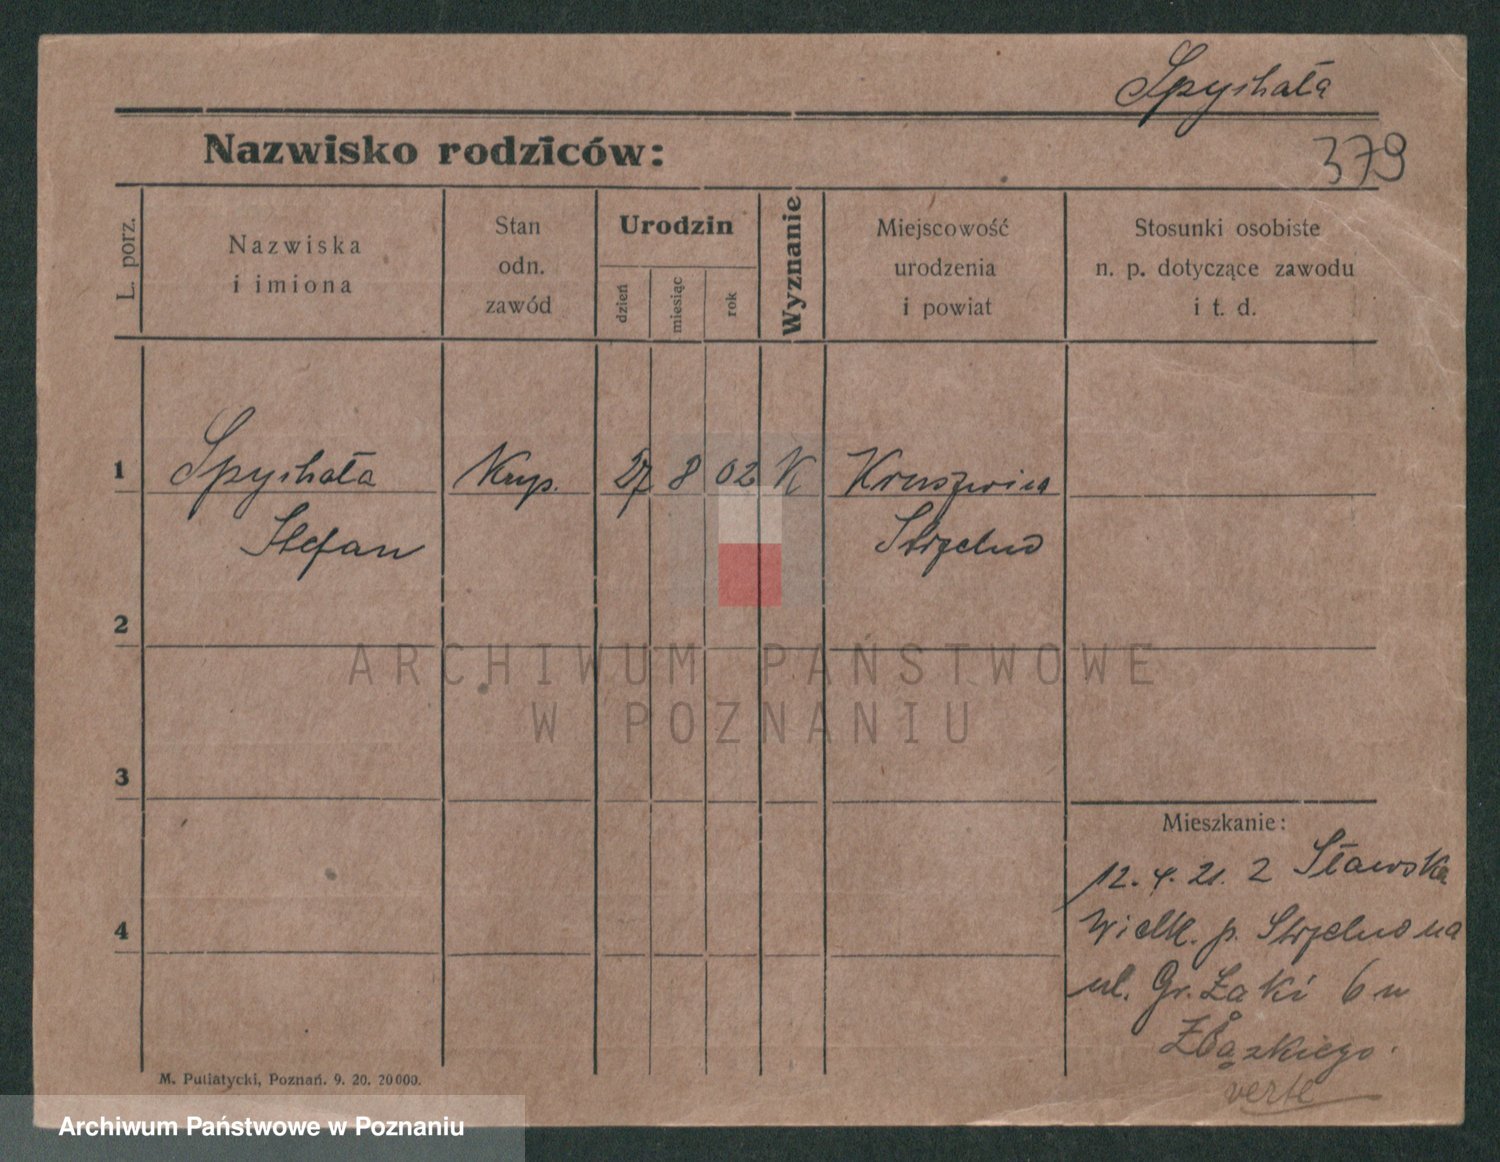 Spychała
Nazwisko rodziców:
379
L. porz.
Nazwiska
i imiona
Stan
odn.
zawód
Urodzin
dzień
miesiąc
rok
Wyznanie
Miejscowość
urodzenia
i powiat
Stosunki osobiste
n. p. dotyczące zawodu
i t. d.
1 Spychała Kup. 27 8 02 K Kruszwica
Stefan Strzelno
2
ARCHIWUM PAŃSTWOWE
W POZNANIU
3
Mieszkanie:
12. 4. 21. Z Sławska
4
Wielk. p. Strzelno na
ul. Gr. Łąki 6 u
Zbąskiego.
verte
M. Putiatycki, Poznań. 9. 20. 20000.
Archiwum Państwowe w Poznaniu